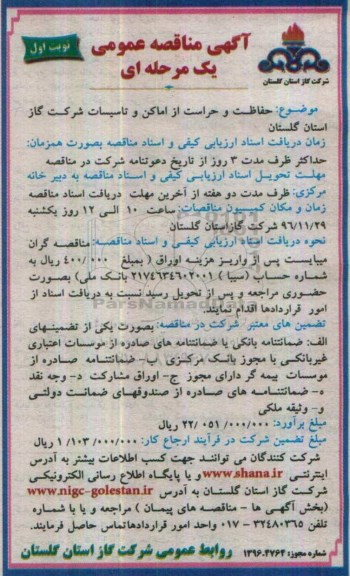 نوبت اول
آگهی مناقصه عمومی
یک مرحله ای
شرکت گاز استان گلستان
موضوع: حفاظت و حراست از اماکن و تاسیسات شرکت گاز
استان گلستان
زمان دریافت اسناد ارزیابی کیفی و اسناد مناقصه بصورت همزمان:
حداکثر ظرف مدت ۳ روز از تاریخ دعوتنامه شرکت در مناقصه
مهلت تحویل اسناد ارزیابی کیفی و اسناد مناقصه به دبیر خانه
مرکزی: ظرف مدت دو هفته از آخرین مهلت دریافت اسناد مناقصه
زمان و مکان کمیسیون مناقصات: ساعت ۱۰ الی ۱۲ روز یکشنبه
۹۶/۱۱/۲۹ شرکت گازاستان گلستان
نحوه دریافت اسناد ارزیابی کیفی و اسناد مناقصه: مناقصه گران
میبایست پس از واریز هزینه اوراق ( بمبلغ ۴۰۰/۰۰۰ ریال به
شماره حساب (سیبا ) ۲۱۷۴۶۳۴۶۰۲۰۰۱ بانک ملی) بصورت
حضوری مراجعه و پس از تحویل رسید نسبت به دریافت اسناد از
امور قراردادها اقدام نمایند.
تضمین های معتبر شرکت در مناقصه: بصورت یکی از تضمینهای
الف: ضمانتنامه بانکی یا ضمانتنامه های صادره از موسسات اعتباری
غیربانکی با مجوز بانک مرکزی ب- ضمانتنامه صادره از
موسسات بیمه گر دارای مجوز ج- اوراق مشارکت د- وجه نقد
ه- ضمانتنامه های صادره از صندوقهای ضمانت دولتی
و- وثیقه ملکی
مبلغ برآورد: ۲۲/۰۵۱/۰۰۰/۰۰۰ ریال
مبلغ تضمین شرکت در فرآیند ارجاع کار: ۱/۱۰۳/۰۰۰/۰۰۰ ریال
شرکت کنندگان می توانند جهت کسب اطلاعات بیشتر به آدرس
اینترنتی www.shana.ir و یا پایگاه اطلاع رسانی الکترونیکی
شرکت گاز استان گلستان به آدرس www.nigc-golestan.ir
(بخش آگهی ها - مناقصه های پیمان ) مراجعه و یا با شماره
تلفن ۳۲۴۸۰۳۶۵ - ۰۱۷ واحد امور قراردادهاتماس حاصل فرمایند.
شماره مجوز: ۱۳۹۶،۴۷۶۴
روابط عمومی شرکت گاز استان گلستان